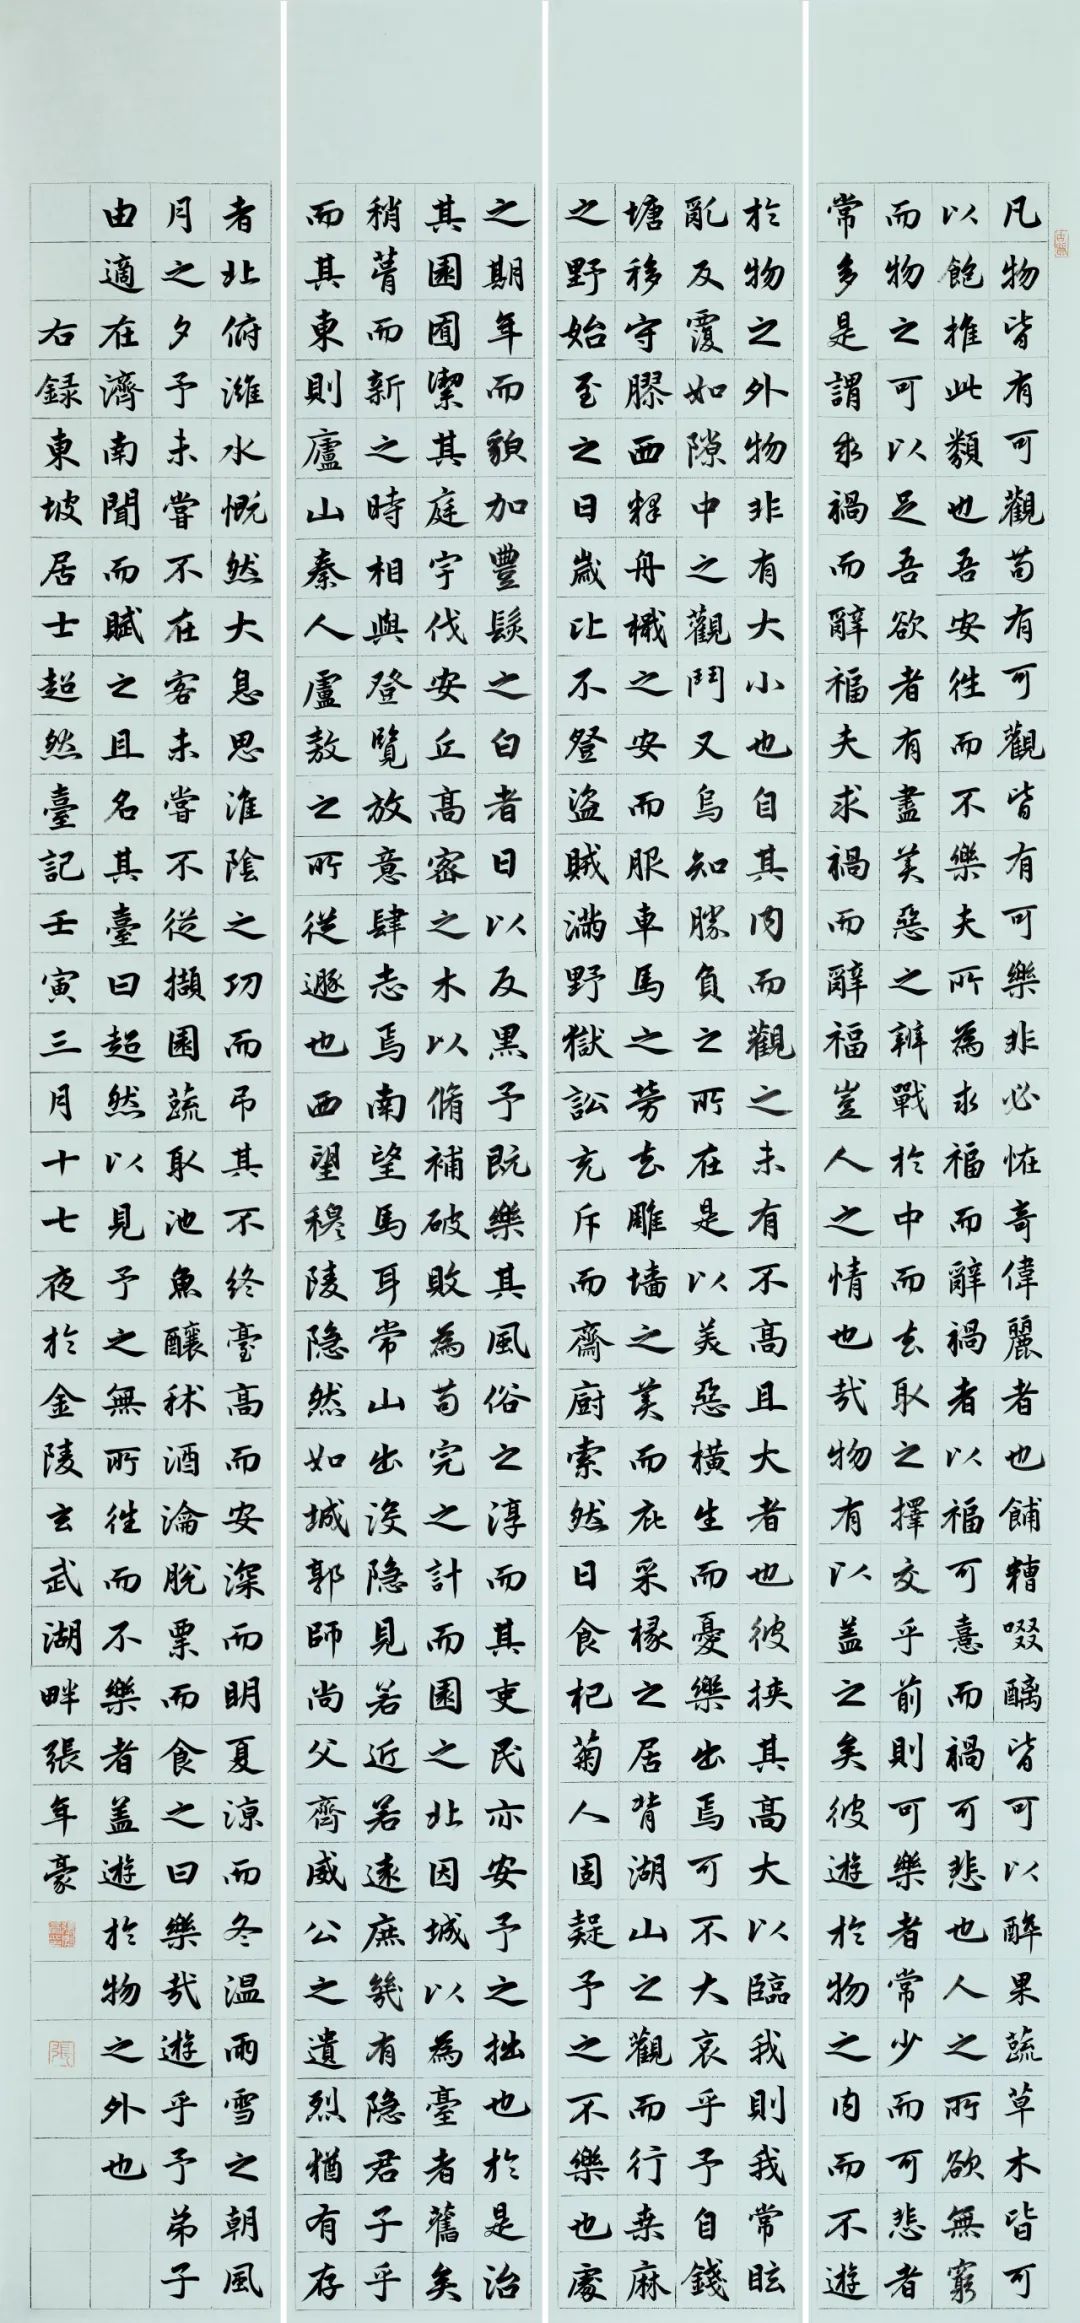 凡物皆有可觀苟有可觀皆有可樂非必恠奇偉麗者也餔糟啜醨皆可以醉果蔬草木皆可
以飽推此類也吾安往而不樂夫所為求福而辭禍者以福可憙而禍可悲也人之所欲無窮
而物之可以足吾欲者有盡美惡之辨戰於中而去取之擇交乎前則可樂者常少而可悲者
常多是謂求禍而辭福夫求禍而辭福豈人之情也哉物有以盖之矣彼遊於物之内而不遊
於物之外物非有大小也自其内而觀之未有不高且大者也彼挾其高大以臨我則我常眩
亂反覆如隙中之觀鬥又烏知勝負之所在是以美惡橫生而憂樂出焉可不大哀乎予自錢
塘移守膠西釋舟檝之安而服車馬之勞去雕墻之美而庇采椽之居背湖山之觀而行桑麻
之野始至之日歲比不登盜賊滿野獄訟充斥而齋廚索然日食杞菊人固疑予之不樂也處
之期年而貌加豐髮之白者日以反黑予既樂其風俗之淳而其吏民亦安予之拙也於是治
其園囿潔其庭宇伐安丘高密之木以脩補破敗為苟完之計而園之北因城以為臺者舊矣
稍葺而新之時相與登覽放意肆志焉南望馬耳常山出没隐見若近若遠庶幾有隐君子乎
而其東則廬山秦人盧敖之所從遯也西望穆陵隐然如城郭師尚父齊威公之遺烈猶有存
者北俯濰水慨然大息思淮陰之功而弔其不終臺高而安深而明夏涼而冬温雨雪之朝風
月之夕予未嘗不在客未嘗不從擷園蔬取池魚釀秫酒瀹脫粟而食之曰樂哉遊乎予弟子
由適在濟南聞而賦之且名其臺曰超然以見予之無所往而不樂者盖遊於物之外也
右録東坡居士超然臺記壬寅三月十七夜於金陵玄武湖畔張年豪